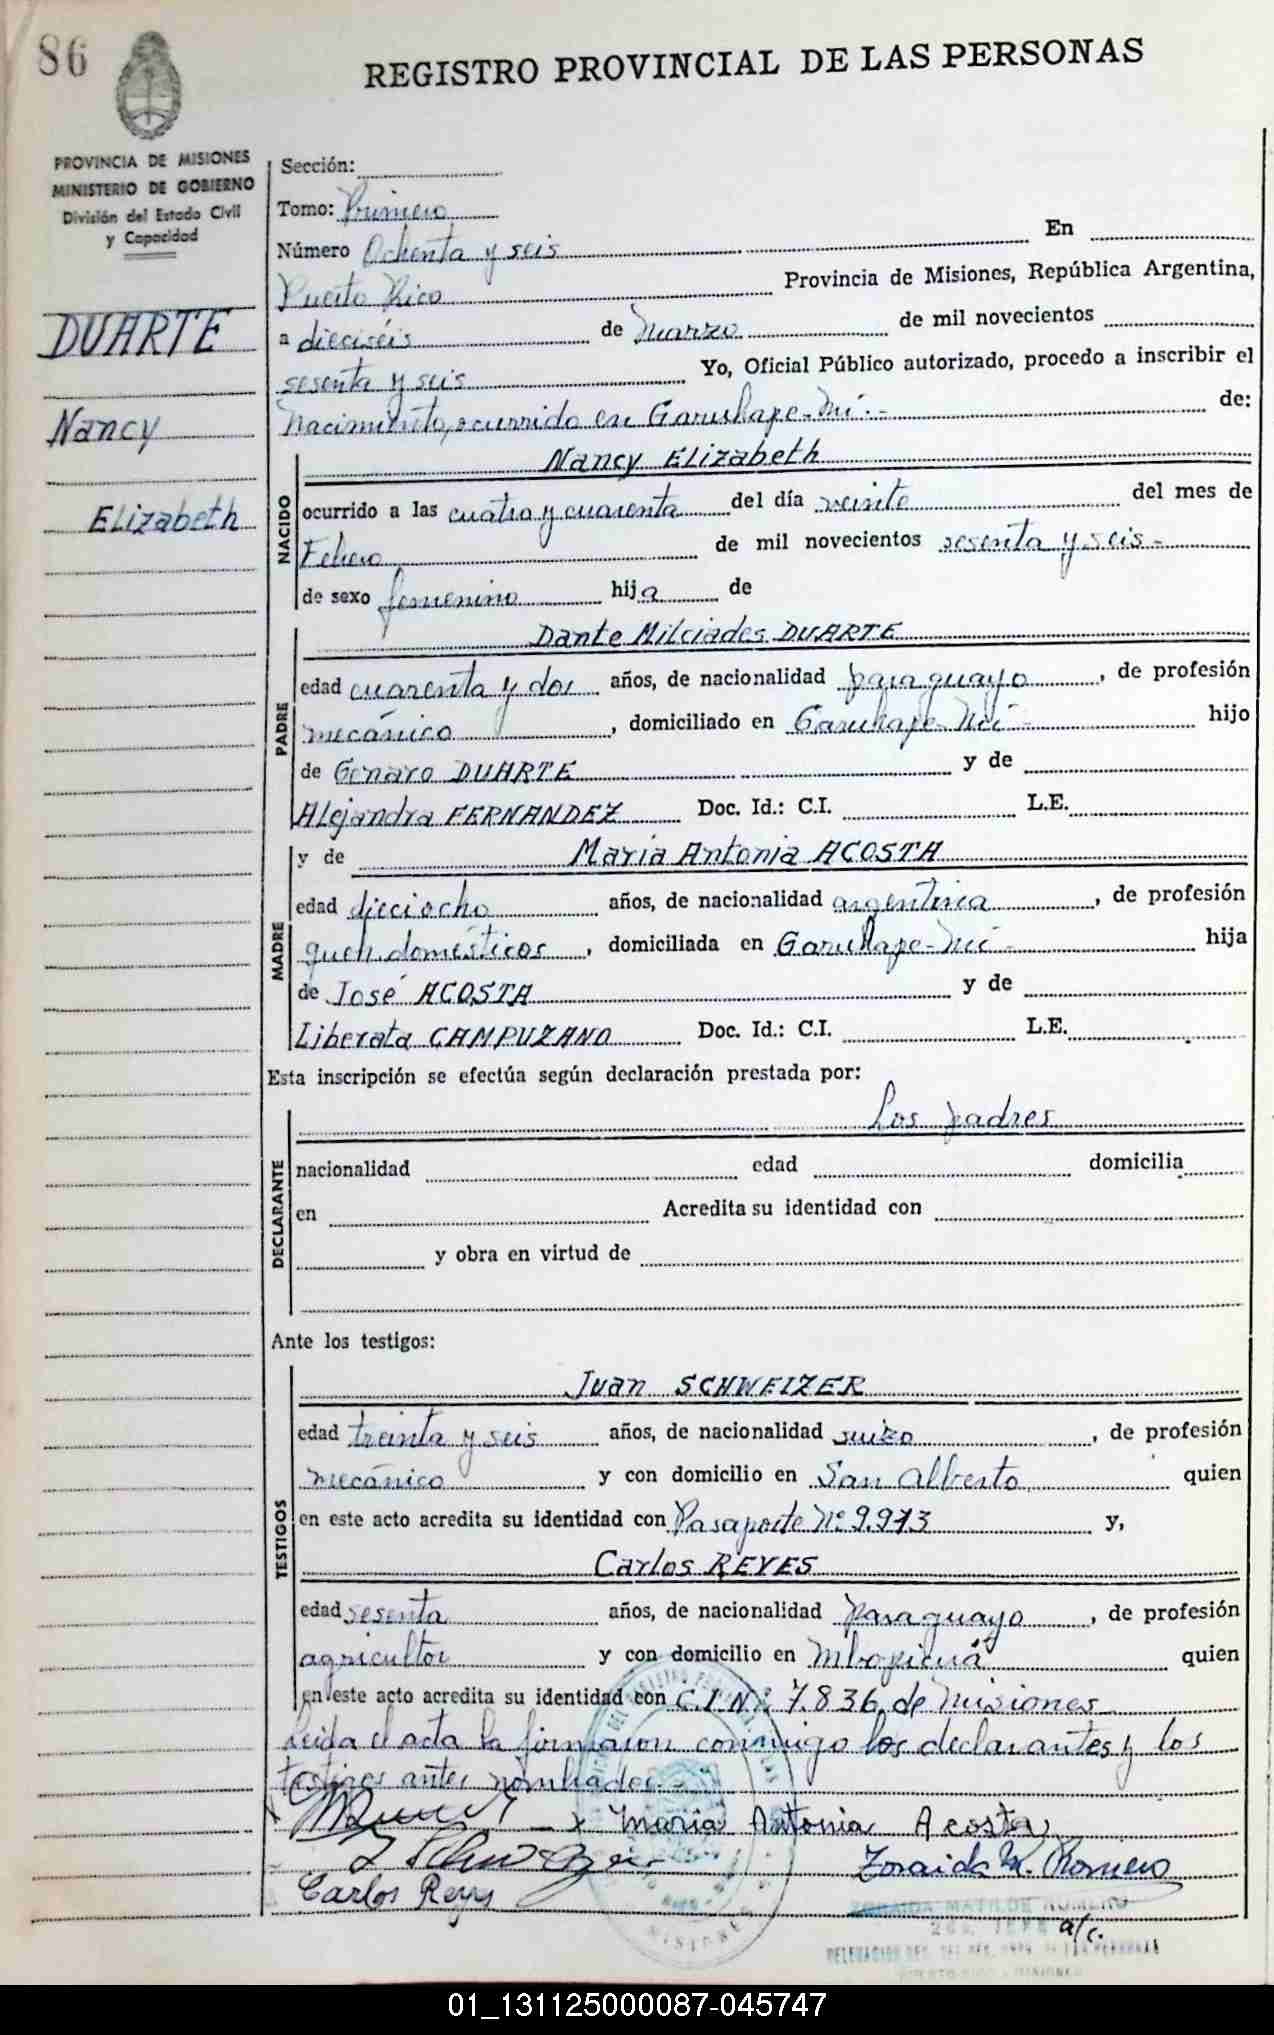 86
REGISTRO PROVINCIAL DE LAS PERSONAS
PROVINCIA DE MISIONES
MINISTERIO DE GOBIERNO
División del Estado Civil
y Capacidad
DUARTE
Nancy
Elizabeth
Sección:
Tomo: Primero
Número Ochenta y seis En
Puerto Rico Provincia de Misiones, República Argentina,
a dieciséis de Marzo de mil novecientos
sesenta y seis Yo, Oficial Público autorizado, procedo a inscribir el
Nacimiento, ocurrido en Garuhape-Mí.- de:
NACIDO
Nancy Elizabeth
ocurrido a las cuatro y cuarenta del día veinte del mes de
Febrero de mil novecientos sesenta y seis-
de sexo femenino hija de
PADRE
Dante Milciades DUARTE
edad cuarenta y dos años, de nacionalidad paraguayo, de profesión
mecánico, domiciliado en Garuhape-Mí- hijo
de Genaro DUARTE y de
Alejandra FERNANDEZ Doc. Id.: C.I. L.E.
MADRE
y de Maria Antonia ACOSTA
edad dieciocho años, de nacionalidad argentina, de profesión
queh. domésticos, domiciliada en Garuhape-Mí- hija
de José ACOSTA y de
Liberata CAMPUZANO Doc. Id.: C.I. L.E.
Esta inscripción se efectúa según declaración prestada por:
DECLARANTE
Los padres
nacionalidad edad domicilia
en Acredita su identidad con
y obra en virtud de
Ante los testigos:
TESTIGOS
Juan SCHWEIZER
edad treinta y seis años, de nacionalidad suizo, de profesión
mecánico y con domicilio en San Alberto quien
en este acto acredita su identidad con Pasaporte Nº 9.973 y,
Carlos REYES
edad sesenta años, de nacionalidad paraguayo, de profesión
agricultor y con domicilio en Mbopicuá quien
en este acto acredita su identidad con C.I.Nº 7.836, de Misiones
Leída el acta la firmaron conmigo los declarantes y los
testigos antes nombrados.-
x Maria Antonia Acosta
Zoraida M. Romero
Carlos Reyes
ZORAIDA MATILDE ROMERO
a/c.
MISIONES
01_131125000087-045747